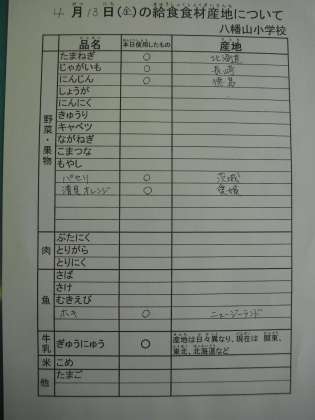 4月13日(金)の給食食材産地について
八幡山小学校
品名 本日使用したもの 産地
野菜・果物
たまねぎ ○ 北海道
じゃがいも ○ 長崎
にんじん ○ 徳島
しょうが
にんにく
きゅうり
キャベツ
ながねぎ
こまつな
もやし
パセリ ○ 茨城
清見オレンジ ○ 愛媛
肉
ぶたにく
とりがら
とりにく
魚
さば
さけ
むきえび
ホキ ○ ニュージーランド
牛乳 ぎゅうにゅう ○ 産地は日々異なり、現在は 関東、
東北、北海道など
米 こめ
他 たまご